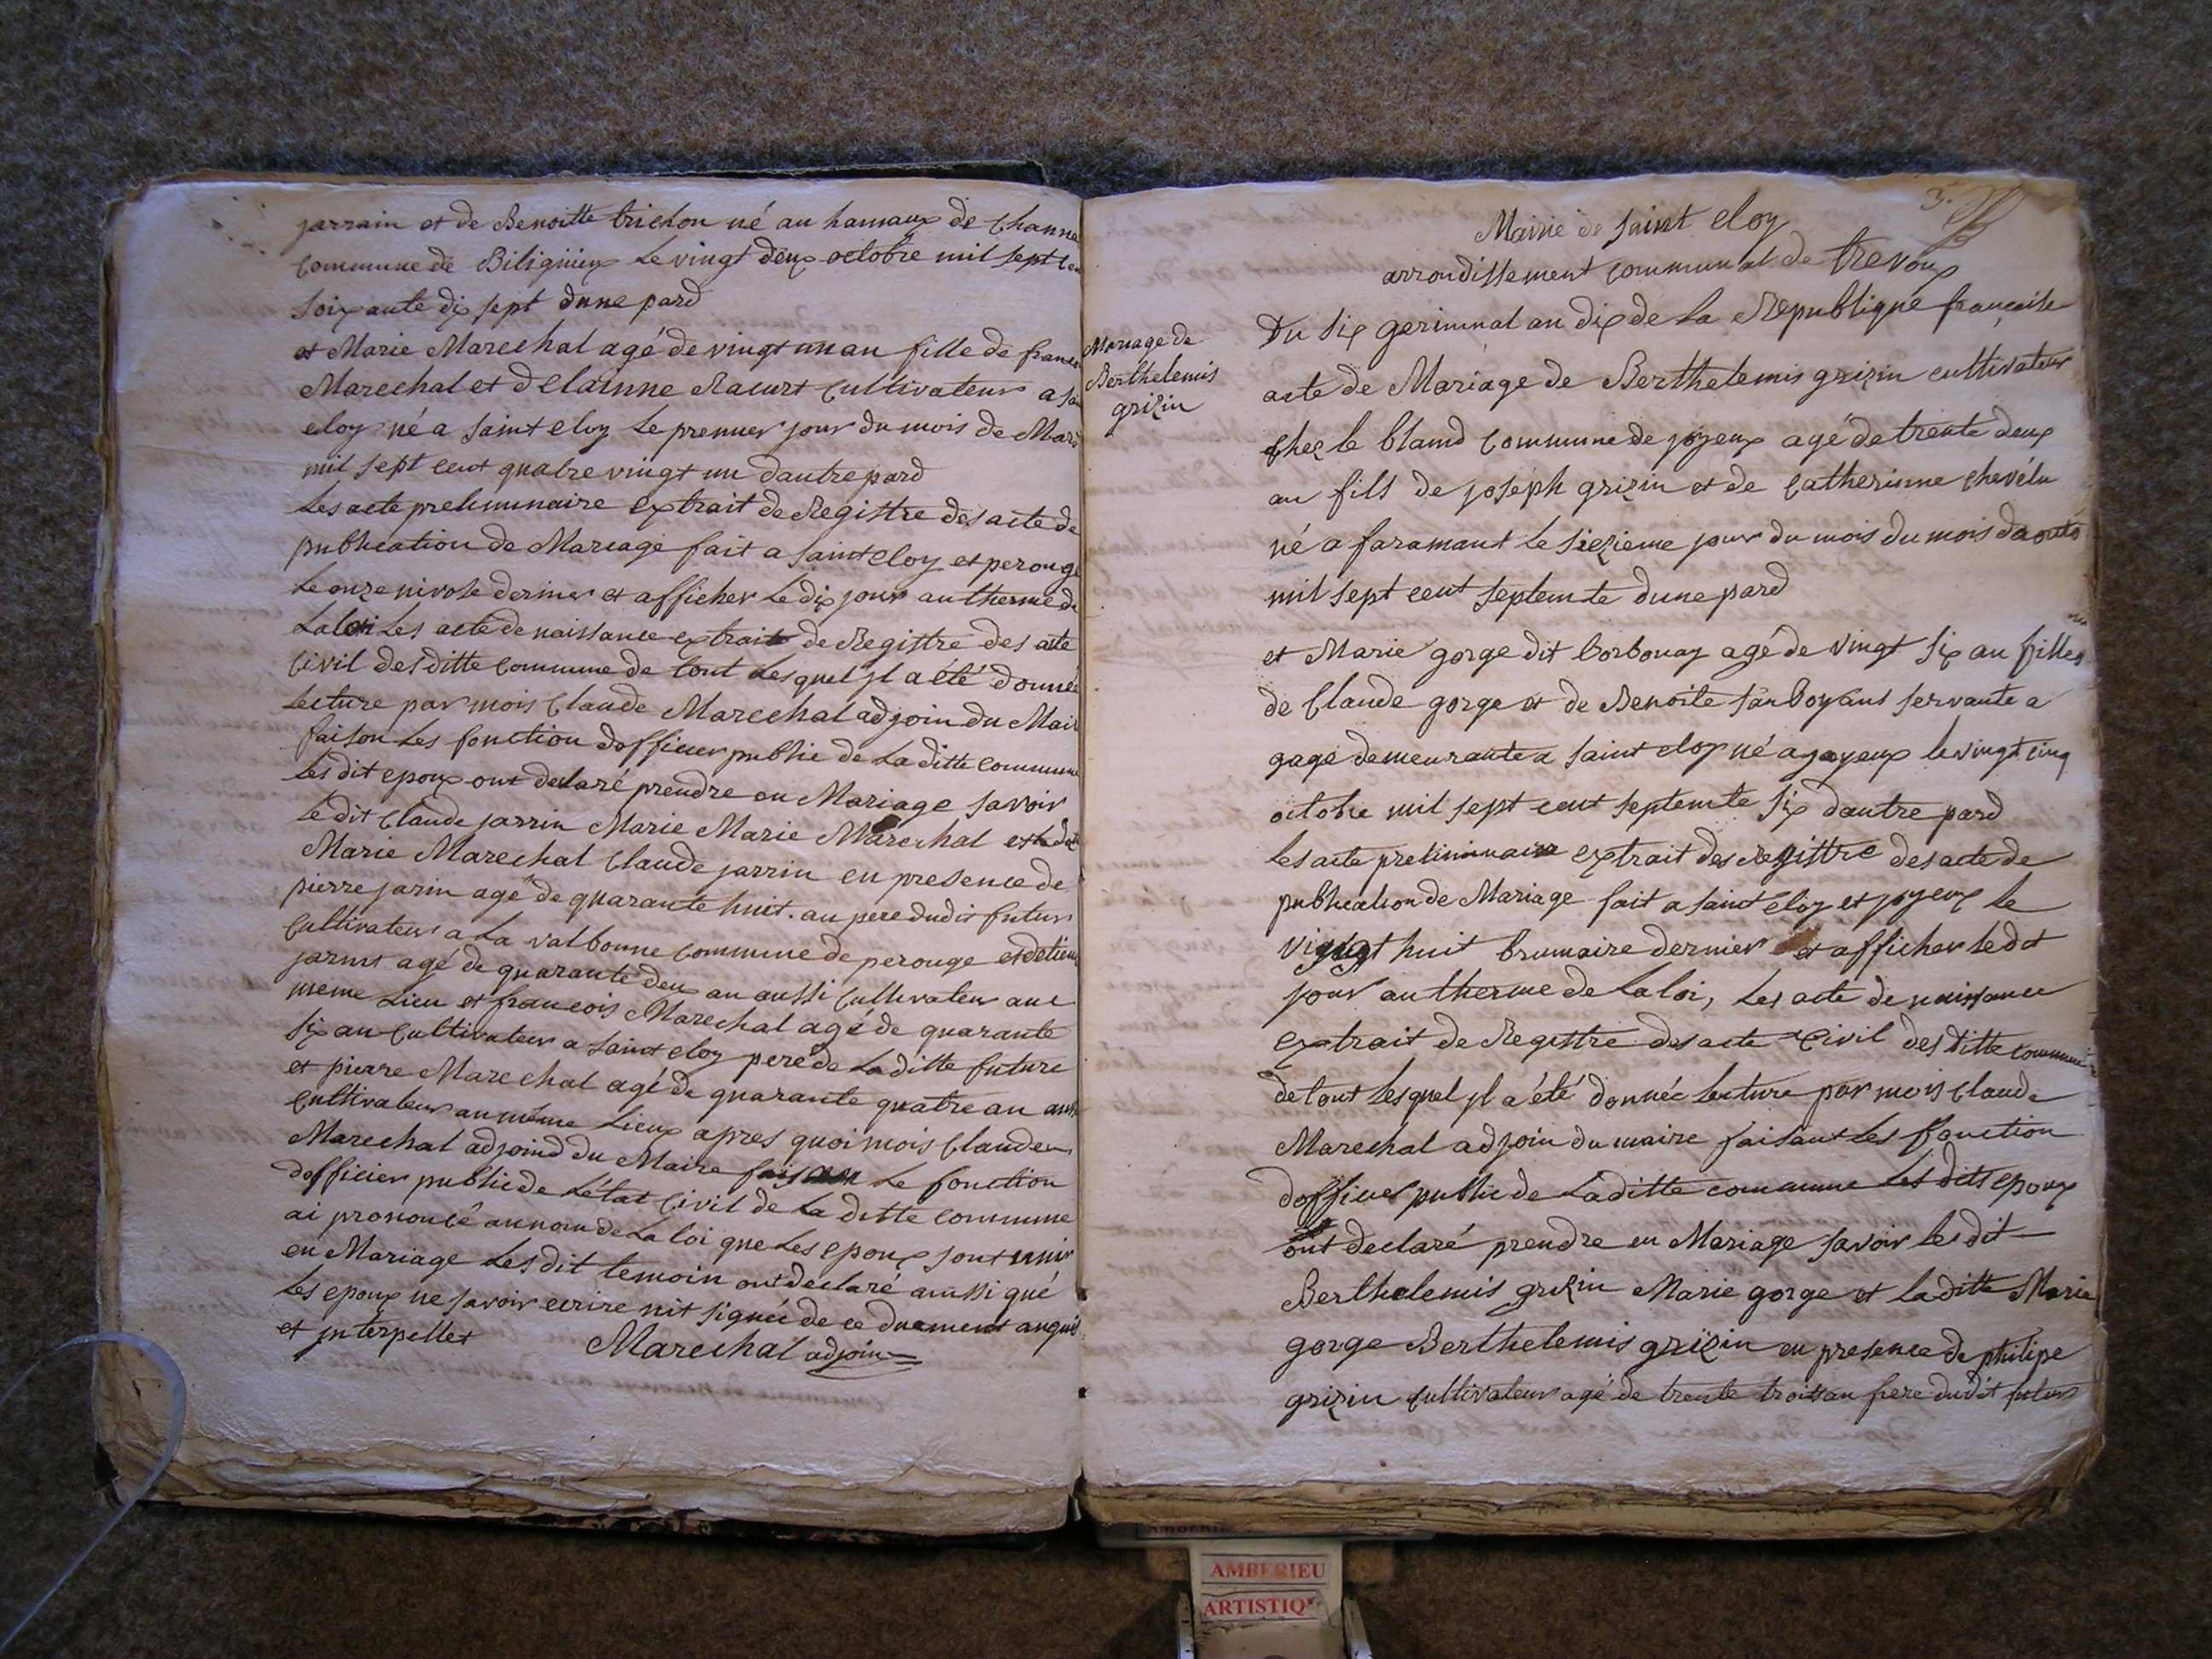 jarrain et de Benoitte trichon né au hamaux de Channe
commune de Biligniux Le vingt deux octobre mil sept cen
soixante dix sept dune pard
et Marie Marechal agé de vingt un an fille de franco
Marechal et delainne Racurt cultivateur a sai
eloy né a saint eloy Le premier jour du mois de Mars
mil sept cent quatre vingt un dautre pard
Les acte preliminaire extrait de Registre des acte de
publication de Mariage fait a saint eloy et perouge
Le onze nivose dernier et afficher Le dix jour au therme de
La loi Les acte de naissance extrait de Registre des acte
Civil desditte commune de tout Lesquel jl a été donnée
Lecture par mois Claude Marechal adjoin du Mair
faison Les fonction dofficier public de La ditte commune
Les dit epoux ont declaré prendre en Mariage savoir
Le dit Claude jarrin Marie Marie Marechal et la dit
Marie Marechal Claude jarrin en presence de
pierre jarin agé de quarante huit an pere dudit futur
Cultivateur a La valbonne commune de perouge et detienn
jarint agé de quarante deux an aussi Cultivateur au
meme Lieu et francois Marechal agé de quarante
six an Cultivateur a saint eloy pere de La ditte future
et pierre Marechal agé de quarante quatre an aussi
Cultivateur au même Lieux apres quoi mois Claude
Marechal adjoind du Maire faison Le fonction
dofficier public de L'état Civil de La ditte commune
ai prononcé au nom de La loi que Les epoux sont unir
en Mariage Les dit temoin ont declaré aussi que
Les epoux ne savoir ecrire nit signée de ce duement anquis
et jnterpellet Marechal adjoin
3.
Mairie de Saint eloy
arrondissement communal de trevoux
Mariage de
Berthelemis
grizin
Du six gerimnal an dix de La Republique francaise
acte de Mariage de Berthelemis grizin cultivateur
Chez le bland commune de joyeux agé de trente deux
an fils de joseph grizin et de Catherinne chevélu
né a faramant Le siezieme jour du mois du mois daouts
mil sept cent septemte dune pard
et Marie gorge dit borbouay agé de vingt six an filles
de Claude gorge et de Benoite servante a
gage demeurante a saint eloy né a joyeux le vingt cinq
octobre mil sept cent septemte six dautre pard
Les acte preliminaire extrait des Registre des acte de
publication de Mariage fait a saint eloy et joyeux le
vingt huit brumaire dernier et afficher le dit
jour au therme de La loi, Les acte de naissance
extrait de Registre des acte Civil des ditte commune
de tout Lesquel jl a été donnée Lecture par mois Claude
Marechal adjoin du maire faisant Les fonction
dofficier public de La ditte commune Les dits epoux
ont declaré prendre en Mariage savoir les dit
Berthelemis grizin Marie gorge et la ditte Marie
gorge Berthelemis grizin en presence de philipe
grizin Cultivateur agé de trente trois an frere dudit futur
AMBERIEU
ARTISTIQ